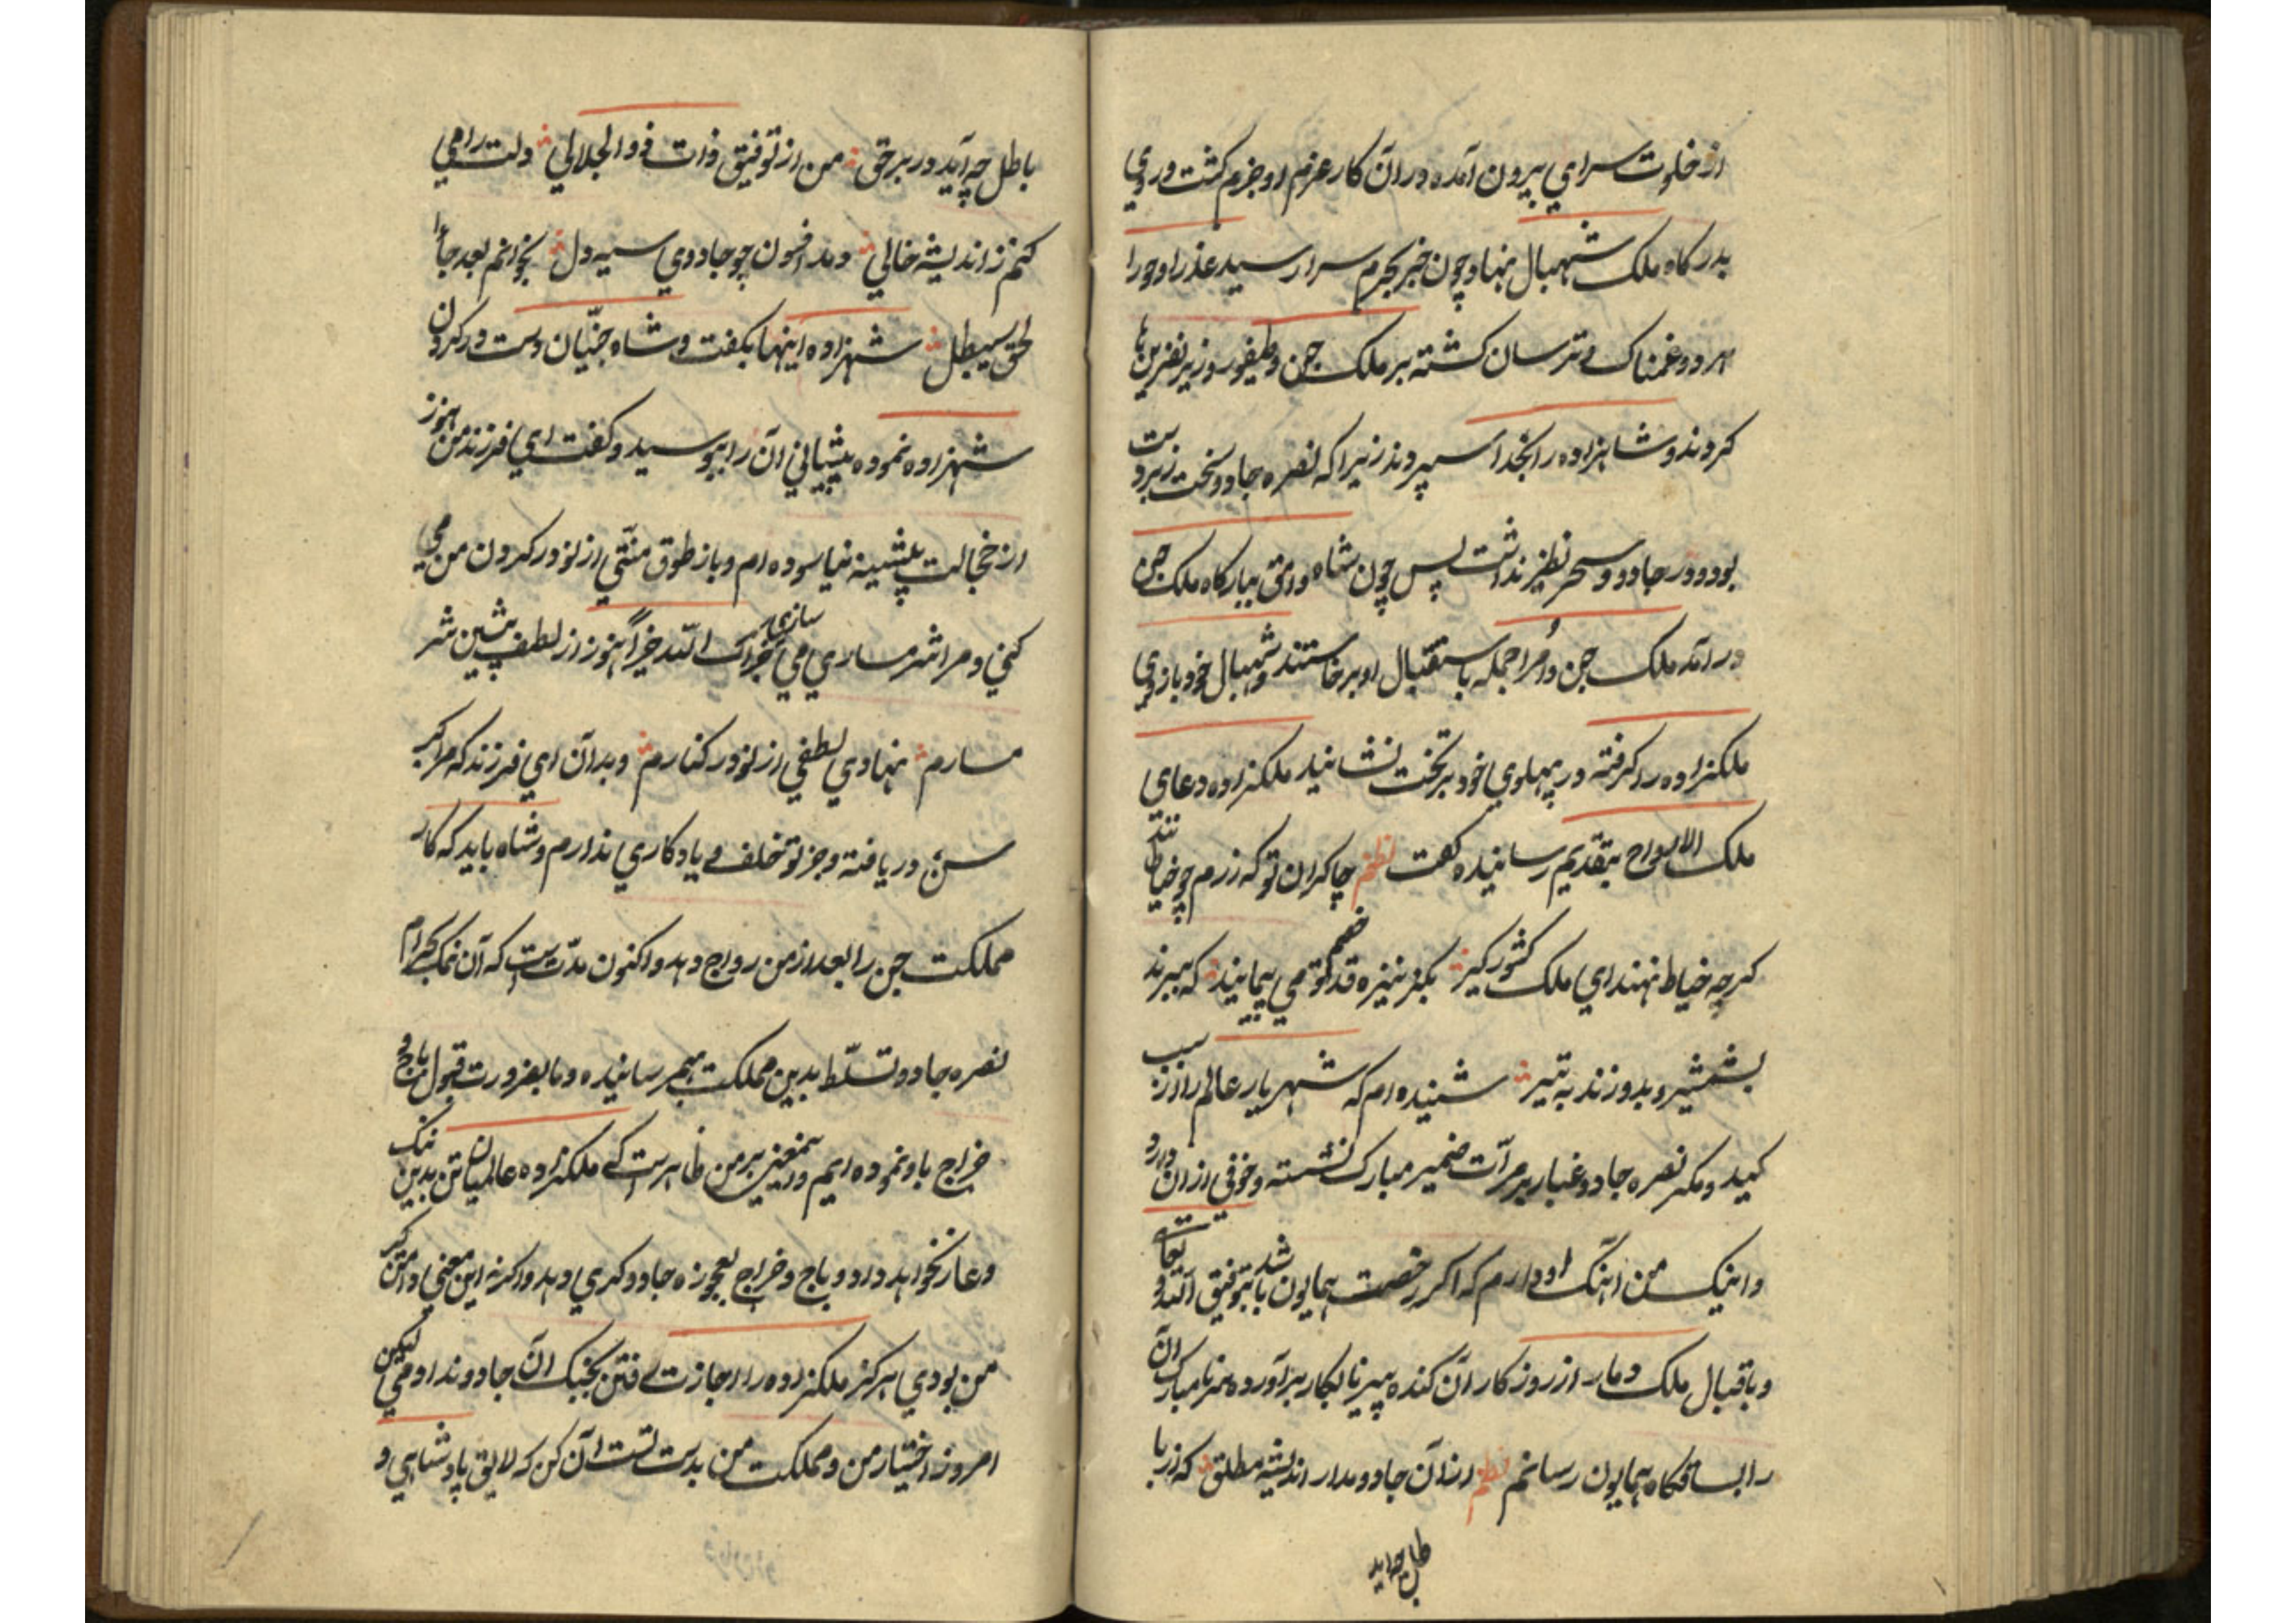 از خلوت سرای بیرون آمده در آن کار عزم او جزم کشت و روی
بدرکاه ملک شهبال نهاد و چون خبر بحرم سرا رسید عذرا و حورا
هر دو غمناک و ترسان کشته بر ملک جن و طیفور وزیر نفرین‌ها
کردند و شاهزاده را بخدا سپردند زیرا که نصره جادو سخت زبردست
بود و در جادو و سحر نظیر نداشت پس چون شاه وامق ببارکاه ملک جن
در آمد ملک جن و امرا جمله باستقبال او برخاستند و شهبال خود بازوی
ملکزاده را کرفته در پهلوی خود بر تخت نشانید ملکزاده دعای
ملک الارواح بتقدیم رسانیده کفت نظم چاکران تو که رزم چو خیاطانند
کرچه خیاط نهند ای ملک کشور کیر بکز نیزه قد خصم تو می پیمایند که ببرند
بشمشیر و بدوزند به تیر شنیده‌ام که شهریار عالم را از سبب
کید و مکر نصره جادو غبار بر مرآت ضمیر مبارک نشسته و خوفی از آن دارد
و اینک من آهنک او دارم که اکر رخصت همایون باشد بتوفیق الله تعالی و
و باقبال ملک دمار از روزکار آن کنده پیر نابکار برآورده سر نامبارک آن
را بساقکاه همایون رسانم نظم از آن جادو مدار اندیشه مطلق که از با
طل چه آید
باطل چه آید در بر حق من از توفیق ذات ذو الجلالی دلت را می
کنم ز اندیشه خالی دمد افسون چو جادوی سیه دل بخوانم بعد جاء ا
لحق سیبطل شهزاده اینها بکفت و شاه جنّیان دست در کردن
شهزاده نموده پیشانی آن را ببوسید و کفت ای فرزند من هنوز
از خجالت پیشینه نیاسوده‌ام و باز طوق منّتی از نو در کردن من می
کنی و مرا شرمساری می سازی جزاک الله خیراً هنوز از لطف پیشین شر
مسارم نهادی لطفی از نو در کنارم و بدان ای فرزند که مرا کبر
سن دریافته و جز تو خلف و یادکاری ندارم و شاه باید که کار
مملکت جن را بعد از من رواج دهد و اکنون مدّت‌ست که آن نمک بحرام
نصره جادو تسلّط بدین مملکت بهم رسانیده و ما بضرورت قبول باج و
خراج باو نموده‌ایم و این معنی بر من ظاهرست که ملکزاده عالمیان تن بدین ننک
و عار نخواهد داد و باج و خراج بعجوزه جادوکری دهد و اکر نه این معنی دامن کیر
من بودی هرکز ملکزاده را اجازت رفتن بجنک آن جادو ندادمی لیکن
امروز اختیار من و مملکت من بدست تست آن کن که لایق پادشاهی و